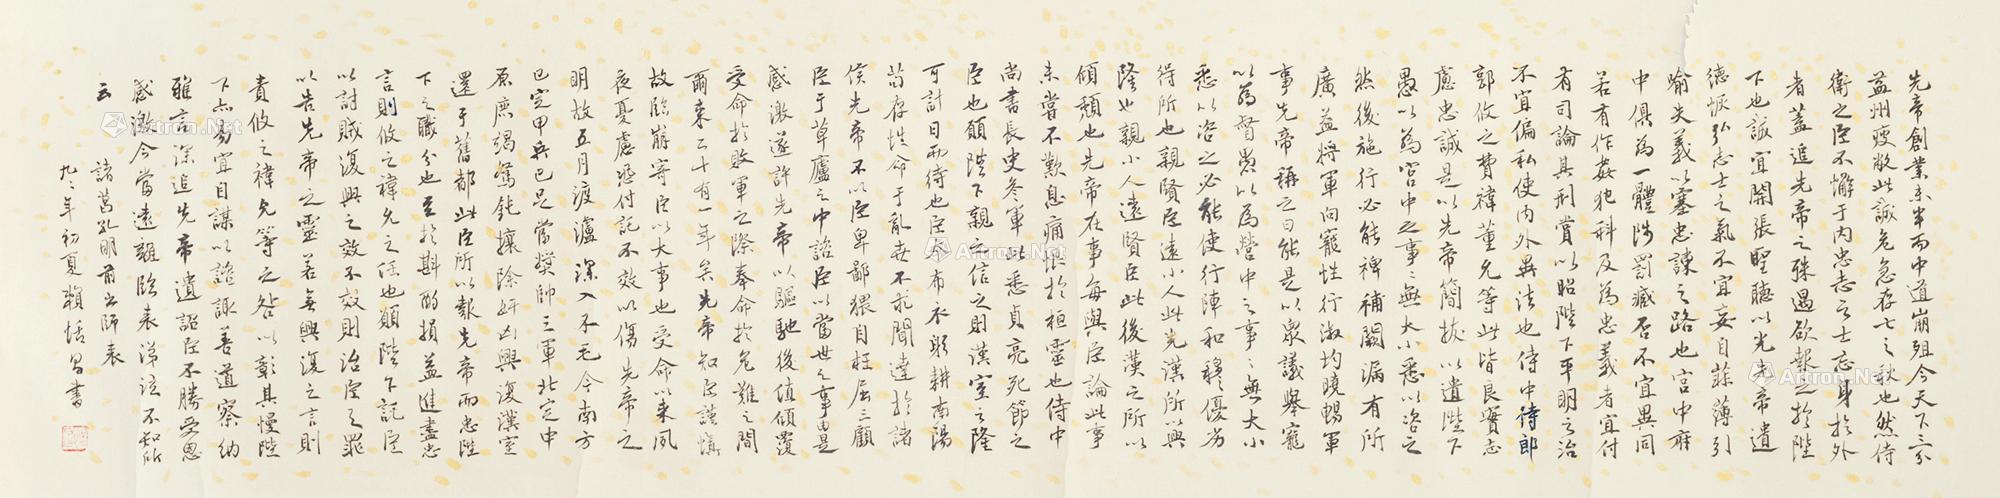 先帝創業未半而中道崩殂今天下三分
益州疲敝此誠危急存亡之秋也然侍
衛之臣不懈于內忠志之士忘身於外
者蓋追先帝之殊遇欲報之於陛
下也誠宜開張聖聽以光先帝遺
德恢弘志士之氣不宜妄自菲薄引
喻失義以塞忠諫之路也宮中府
中俱為一體陟罰臧否不宜異同
若有作姦犯科及為忠義者宜付
有司論其刑賞以昭陛下平明之治
不宜偏私使內外異法也侍中侍郎
郭攸之費禕董允等此皆良實志
慮忠誠是以先帝簡拔以遺陛下
愚以為宮中之事〻無大小悉以咨之
然後施行必能裨補闕漏有所
廣益將軍向寵性行淑均曉暢軍
事先帝稱之曰能是以眾議舉寵
以為督愚以為營中之事〻無大小
悉以咨之必能使行陣和穆優劣
得所也親賢臣遠小人此先漢所以興
隆也親小人遠賢臣此後漢之所以
傾頹也先帝在事每與臣論此事
未嘗不歎息痛恨於桓靈也侍中
尚書長史參軍此悉貞亮死節之
臣也願陛下親之信之則漢室之隆
可計日而待也臣本布衣躬耕南陽
苟存性命于亂世不求聞達於諸
侯先帝不以臣卑鄙猥自枉屈三顧
臣于草廬之中諮臣以當世之事由是
感激遂許先帝以驅馳後值傾覆
受命於敗軍之際奉命於危難之間
爾來二十有一年矣先帝知臣謹慎
故臨崩寄臣以大事也受命以來夙
夜憂慮恐付託不效以傷先帝之
明故五月渡瀘深入不毛今南方
已定甲兵已足當獎帥三軍北定中
原庶竭駑鈍攘除奸凶興復漢室
還于舊都此臣所以報先帝而忠陛
下之職分也至於斟酌損益進盡忠
言則攸之禕允之任也願陛下託臣
以討賊復興之效不效則治臣之罪
以告先帝之靈若無興復之言則
責攸之禕允等之咎以彰其慢陛
下亦易宜自謀以諮諏善道察納
雅言深追先帝遺詔臣不勝受恩
感激今當遠離臨表涕泣不知所
云 諸葛孔明前出師表
九二年初夏賴恬昌書
Artron.Net
Artron.Net
Artron.Net
Artron.Net
Artron.Net